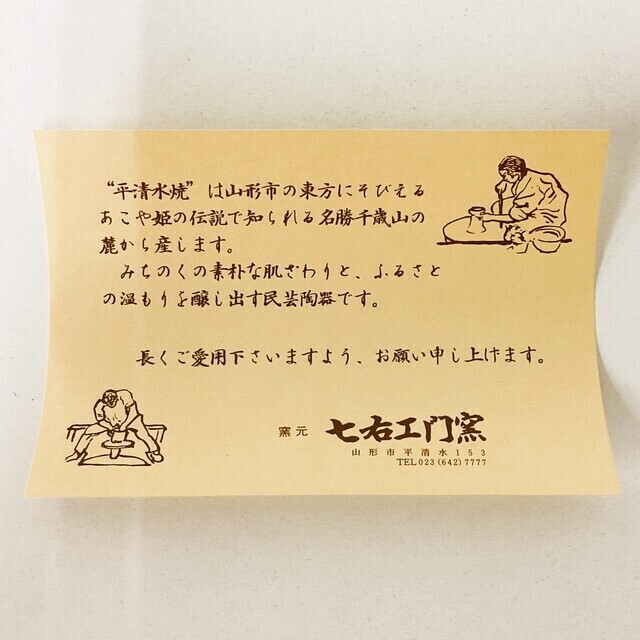 “平清水焼”は山形市の東方にそびえる
あこや姫の伝説で知られる名勝千歳山の
麓から産します。
みちのくの素朴な肌ざわりと、ふるさと
の温もりを醸し出す民芸陶器です。
長くご愛用下さいますよう、お願い申し上げます。
窯元 七右エ门窯
山形市平清水153
TEL023(642)7777